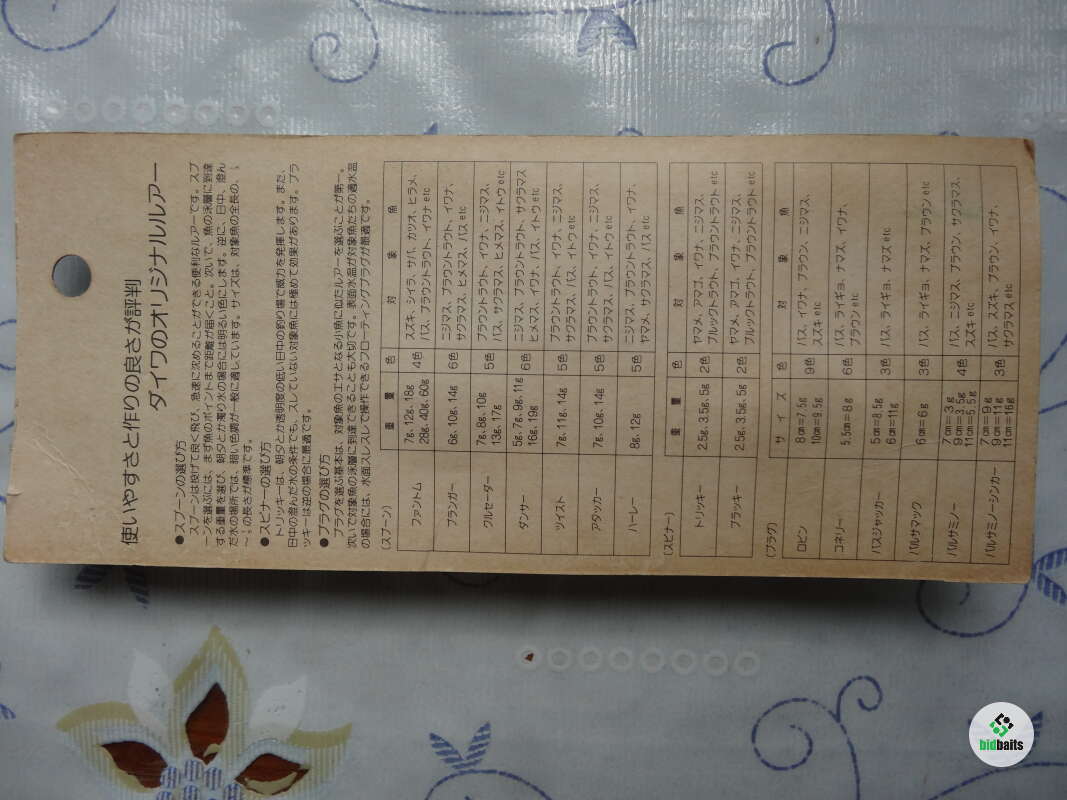 使いやすさと作りの良さが評判
ダイワのオリジナルルアー
●スプーンの選び方
スプーンは投げて良く飛び、急速に沈めることができる便利なルアーです。スプ
ーンを選ぶには、まず魚のポイントまで距離が届くこと。次いで、魚の泳層に到達
する重量を選び、朝夕とか濁り水の場合には明るい色にします。逆に、日中、澄ん
だ水の場所では、暗い色調が一般に適しています。サイズは、対象魚の全長の
の長さが標準です。
●スピナーの選び方
トリッキーは、朝夕とか透明度の低い日中の釣り場で威力を発揮します。また、
日中の澄んだ水の条件でも、スレていない対象魚には極めて効果があります。ブラ
ッキーは逆の場合に最適です。
●プラグの選び方
プラグを選ぶ基本は、対象魚のエサとなる小魚に似たルアーを選ぶことが第一。
次いで対象魚の泳層に到達できることも大切です。表面水温が対象魚たちの適水温
の場合には、水面スレスレで操作できるフローティングプラグが最適です。
(スプーン) 重量 色 対象魚
ファントム 7g、12g、18g 28g、40g、60g 4色 スズキ、シイラ、サバ、カツオ、ヒラメ、バス、ブラウントラウト、イワナ etc
プランガー 6g、10g、14g 6色 ニジマス、ブラウントラウト、イワナ、サクラマス、ヒメマス、バス etc
クルセーダー 7g、8g、10g 13g、17g 5色 ブラウントラウト、イワナ、ニジマス、バス、サクラマス、ヒメマス、イトウ etc
ダンサー 5g、7g、9g、11g 16g、19g 6色 ニジマス、ブラウントラウト、サクラマス ヒメマス、イワナ、バス、イトウ etc
ツイスト 7g、11g、14g 5色 ブラウントラウト、イワナ、ニジマス、サクラマス、バス、イトウ etc
アタッカー 7g、10g、14g 5色 ブラウントラウト、イワナ、ニジマス、サクラマス、バス、イトウ etc
ハーレー 8g、12g 5色 ニジマス、ブラウントラウト、イワナ、ヤマメ、サクラマス、バス etc
(スピナー) 重量 色 対象魚
トリッキー 2.5g、3.5g、5g 2色 ヤマメ、アマゴ、イワナ、ニジマス、ブルックトラウト、ブラウントラウト etc
ブラッキー 2.5g、3.5g、5g 2色 ヤマメ、アマゴ、イワナ、ニジマス、ブルックトラウト、ブラウントラウト etc
(プラグ) サイズ 色 対象魚
ロビン 8㎝=7.5g 10㎝=9.5g 9色 バス、イワナ、ブラウン、ニジマス、スズキ etc
コネリー 5.5㎝=8g 6色 バス、ライギョ、ナマズ、イワナ、ブラウン etc
バスジャッカー 5㎝=8.5g 6㎝=11g 3色 バス、ライギョ、ナマズ etc
バルサマック 6㎝=6g 3色 バス、ライギョ、ナマズ、ブラウン etc
バルサミノー 7㎝=3g 9㎝=3.5g 11㎝=5.5g 4色 バス、ニジマス、ブラウン、サクラマス、スズキ etc
バルサミノーシンカー 7㎝=9g 9㎝=11g 11㎝=16g 3色 バス、スズキ、ブラウン、イワナ、サクラマス etc
bidbaits